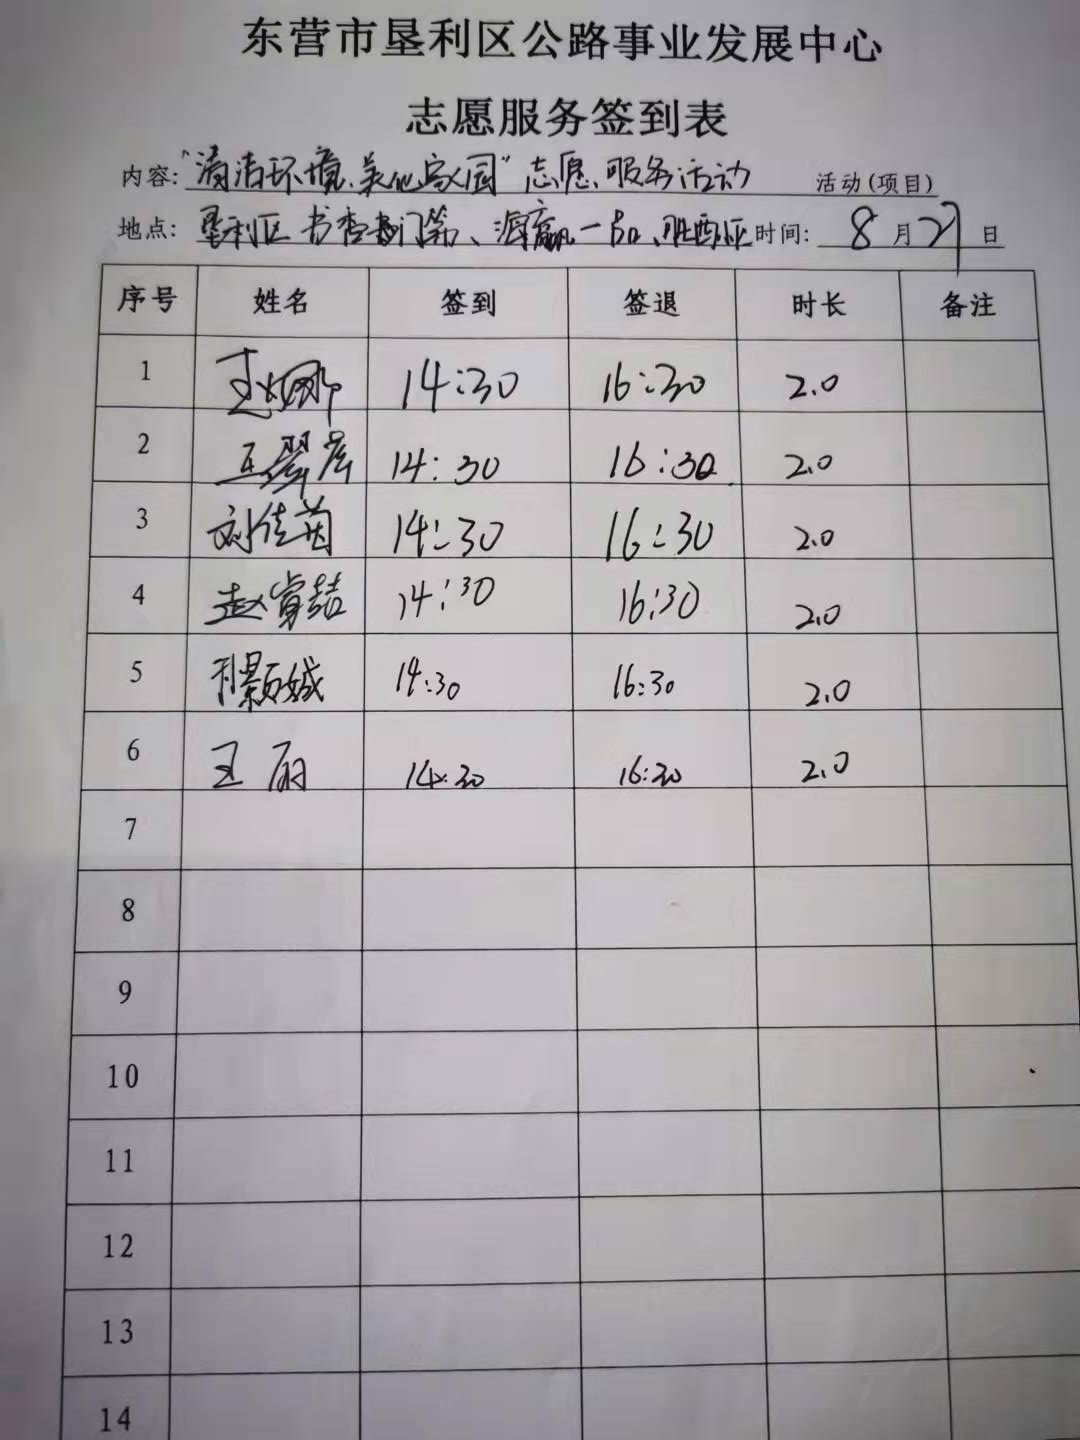 东营市垦利区公路事业发展中心
志愿服务签到表
内容:“清洁环境、美化家园”志愿服务活动 活动(项目)
地点: 垦利区书香门第、 时间: 8月27日
序号 姓名 签到 签退 时长 备注
1 王娜 14:30 16:30 2.0
2 王翠 14:30 16:30 2.0
3 刘佳茵 14:30 16:30 2.0
4 赵 喆 14:30 16:30 2.0
5 14:30 16:30 2.0
6 王丽 14:30 16:30 2.0
7
8
9
10
11
12
13
14